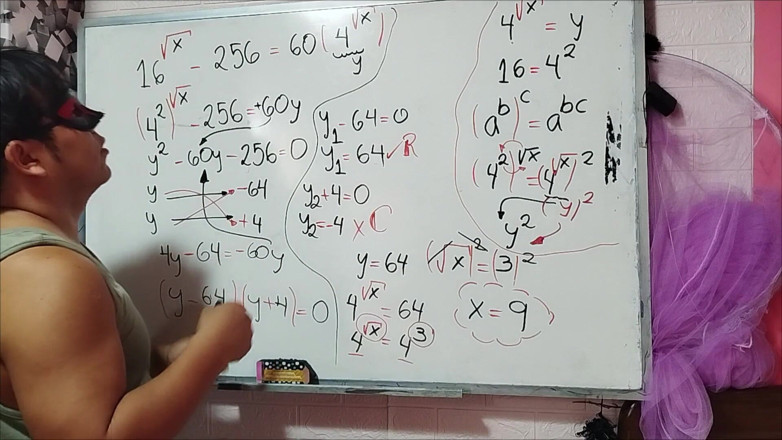 16^√x - 256 = 60(4^√x)
y
(4²)^√x - 256 = +60y
y² - 60y - 256 = 0
y -64
y +4
4y - 64 = -60y
(y - 64)(y + 4) = 0
y₁ - 64 = 0
y₁ = 64 ✓ R
y₂ + 4 = 0
y₂ = -4 × C
y = 64
4^√x = 64
4^√x = 4^3
(√x)² = (3)²
x = 9
4^√x = y
16 = 4²
(a^b)^c = a^bc
(4²)^√x = (4^√x)²
(y)²
y²